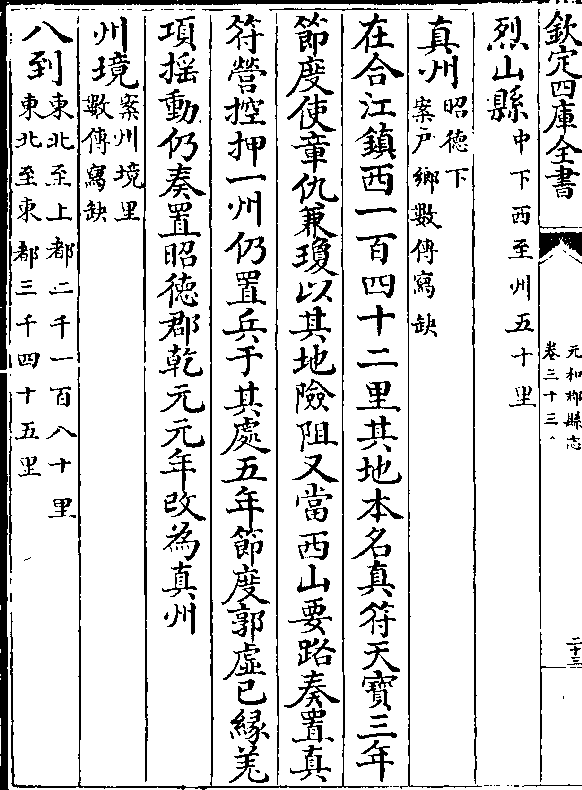 欽定四庫全書
元和郡縣志
卷三十三
二十三
烈山縣中下西至州五十里
真州昭德下
案戶鄉數傳寫缺
在合江鎮西一百四十二里其地本名真符天寶三年
節度使章仇兼瓊以其地險阻又當西山要路奏置真
符營控押一州仍置兵于其處五年節度郭虛已緣羌
項摇動仍奏置昭德郡乾元元年改為真州
州境案州境里
數傳寫缺
八到東北至上都二千一百八十里
東北至東都三千四十五里